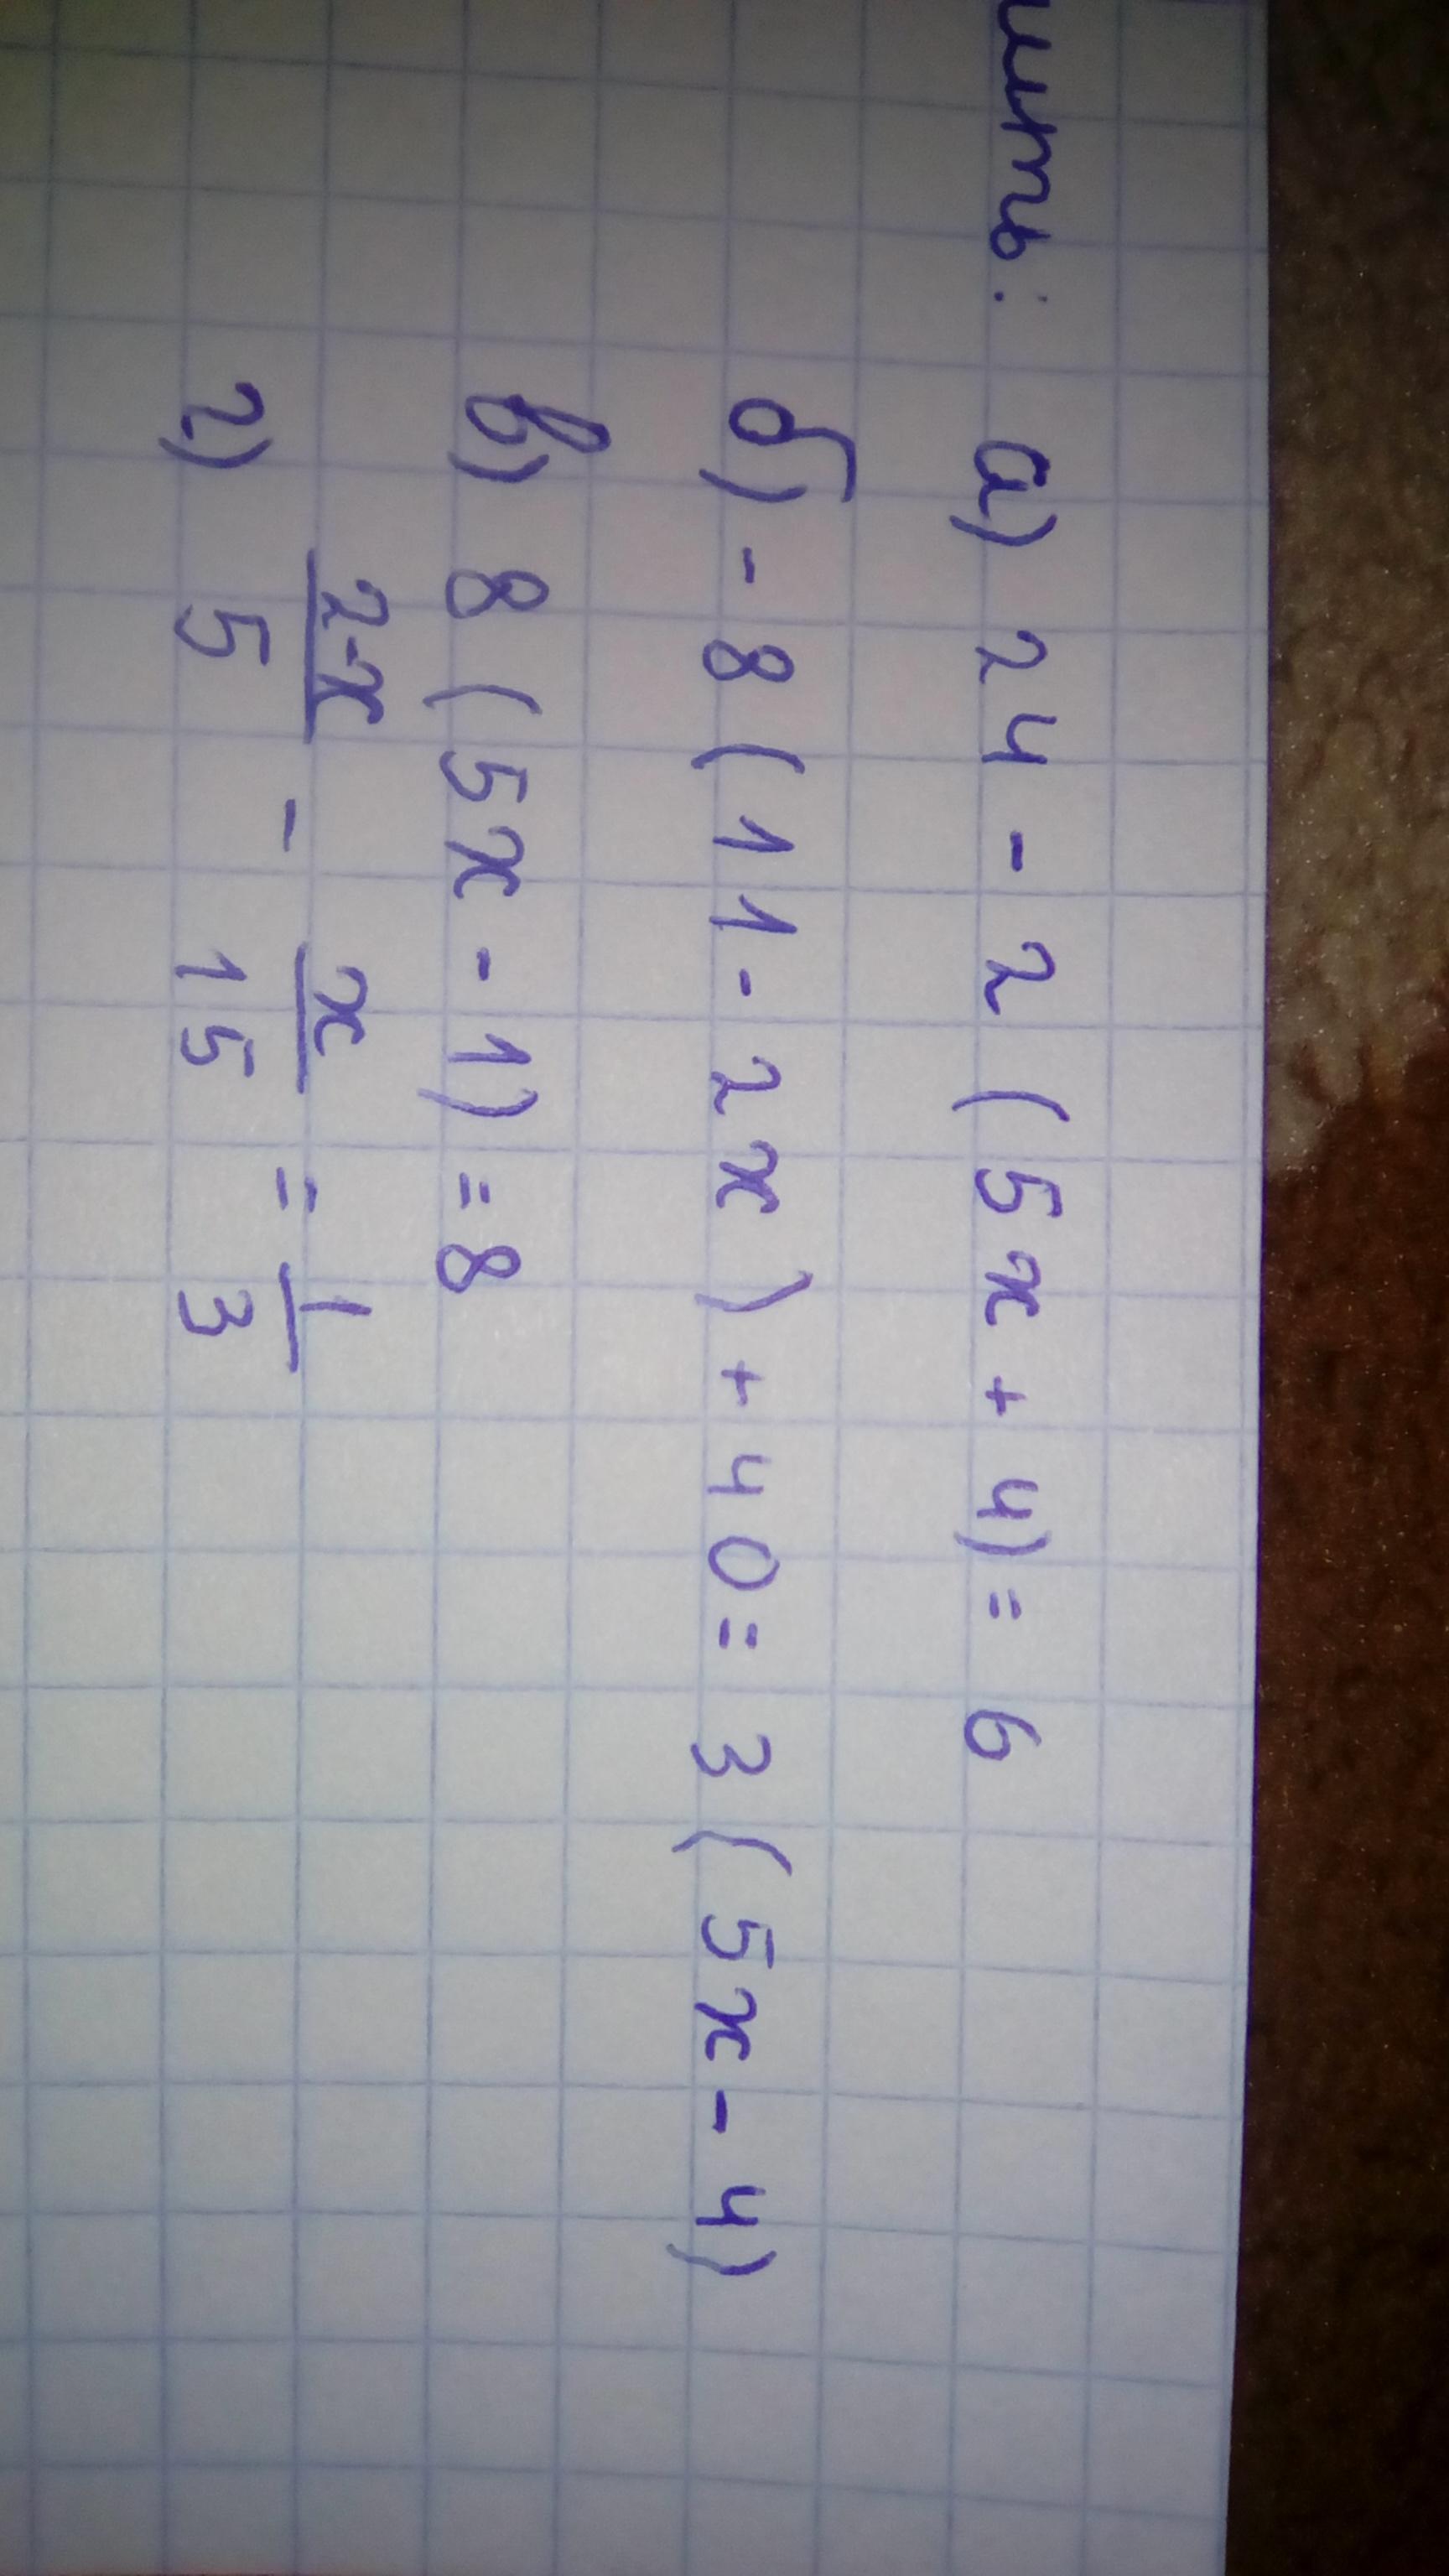 ить: а) 24 - 2 (5x + 4) = 6
б) - 8 (11 - 2x) + 40 = 3 (5x - 4)
в) 8 (5x - 1) = 8
г) \frac{2-x}{5} - \frac{x}{15} = \frac{1}{3}